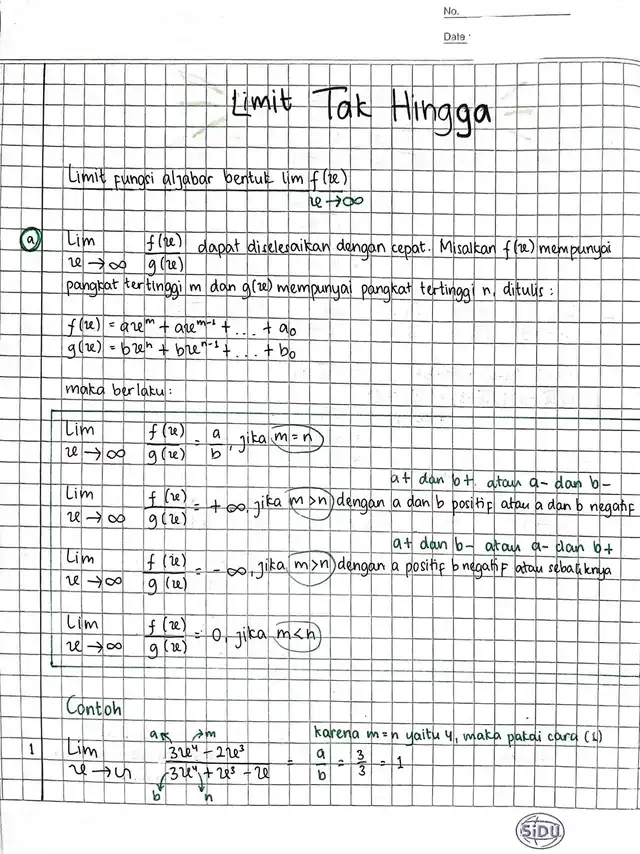 No.
Date :
Limit Tak Hingga
Limit fungsi aljabar bentuk lim f(x)
x → ∞
a Lim x → ∞ f(x)/g(x) dapat diselesaikan dengan cepat. Misalkan f(x) mempunyai
pangkat tertinggi m dan g(x) mempunyai pangkat tertinggi n, ditulis :
f(x) = ax^m + ax^m-1 + ... + a₀
g(x) = bx^n + bx^n-1 + ... + b₀
maka berlaku :
Lim x → ∞ f(x)/g(x) = a/b, jika m = n
a+ dan b+ atau a- dan b-
Lim x → ∞ f(x)/g(x) = +∞, jika m > n dengan a dan b positif atau a dan b negatif
a+ dan b- atau a- dan b+
Lim x → ∞ f(x)/g(x) = -∞, jika m > n dengan a positif b negatif atau sebaliknya
Lim x → ∞ f(x)/g(x) = 0, jika m < n
Contoh
a m karena m = n yaitu 4, maka pakai cara (1)
1 Lim x → ∞ 3x⁴ - 2x³ / 3x⁴ + x³ - x = a/b = 3/3 = 1
b n
SiDU